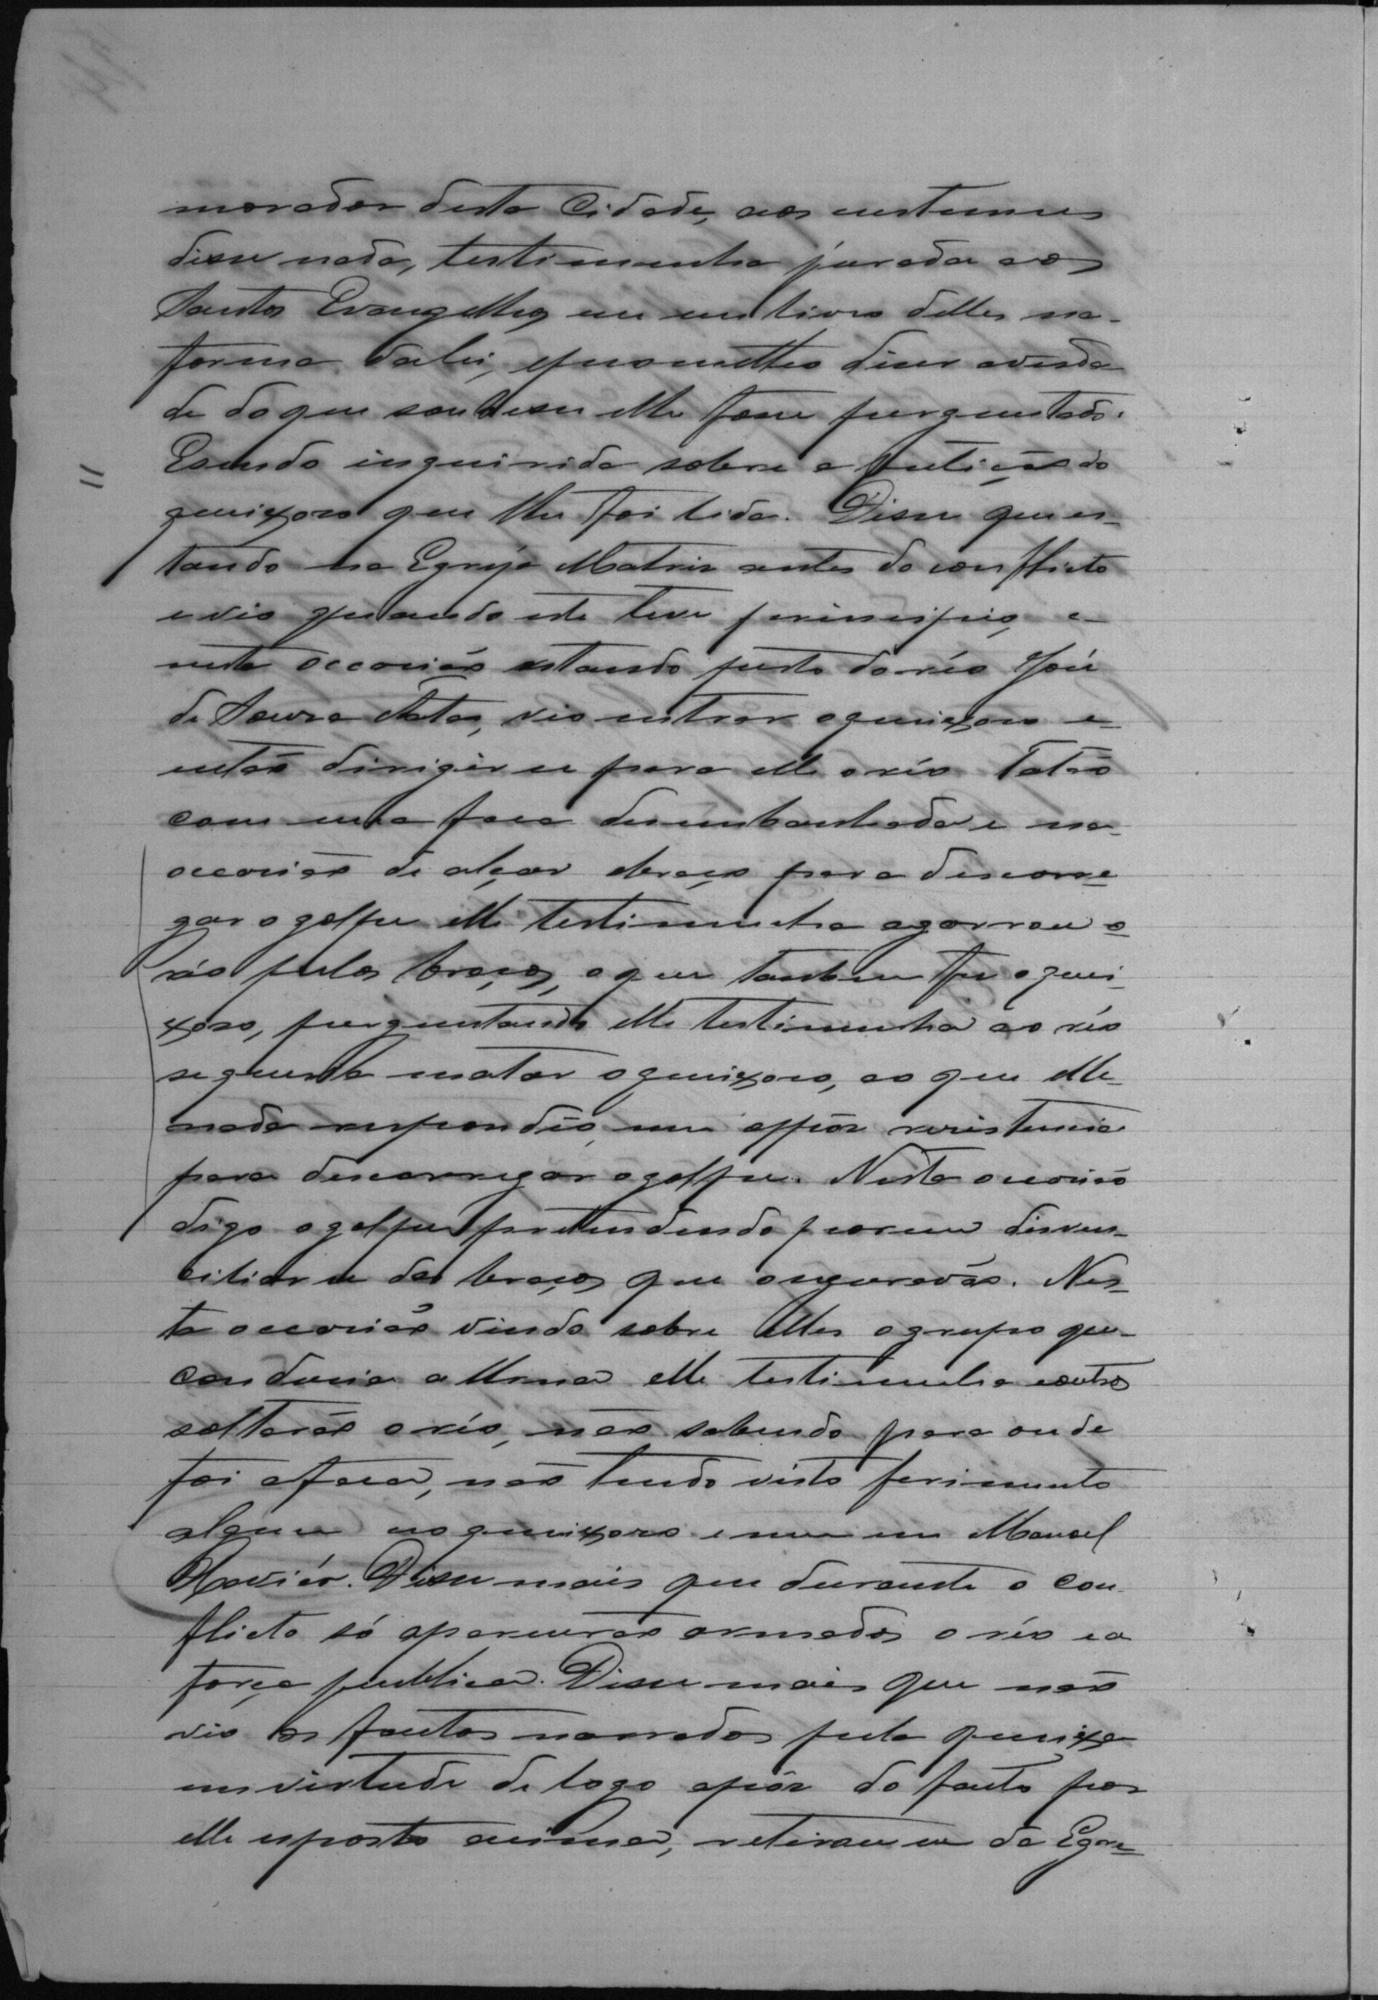 morador desta Cidade, aos custumes
disse nada, testimunha jurada aos
Santos Evangelhos em um livro delles na
forma da lei, e prometteo diser averda
de do que soubesse e lhe fosse perguntado.
E sendo inquirida sobre a petição do
queixoso que lhe foi lida. Disse que es-
tando na Egreja Matriz antes do conflicto
e vio quando este teve principio, e
nesta occasião estando perto do réo José
de Souza Tatão, vio entrar o queixoso e
então dirigir se para elle o réo Tatão
com uma faca desembainhada e na
occasião de alçar o braço para descarre
gar o golpe elle testimunha agarrou o
réo pelos braços, o que tambem fes o quei-
xoso, perguntando elle testimunha ao réo
se queria matar o queixoso, ao que elle
nada respondêo, nem oppôz resistencia
para descarregar o golpe. Nesta occasião
digo o golpe pretendendo porem disven-
ciliar se dos braços que o seguravão. Nes-
ta occasião vindo sobre elles o grupo que
condusia a Urna elle testimunha e outros
soltarão o réo, não sabendo para onde
foi a faca, não tendo visto ferimento
algum no queixoso e nem em Manoel
Xaviér. Disse mais que durante o con-
flicto só aparecerão armados o réo e a
força publica. Disse mais que não
vio os factos narrados pela queixa
em virtude de logo apóz do facto por
elle esposto acima, retirou se da Egre